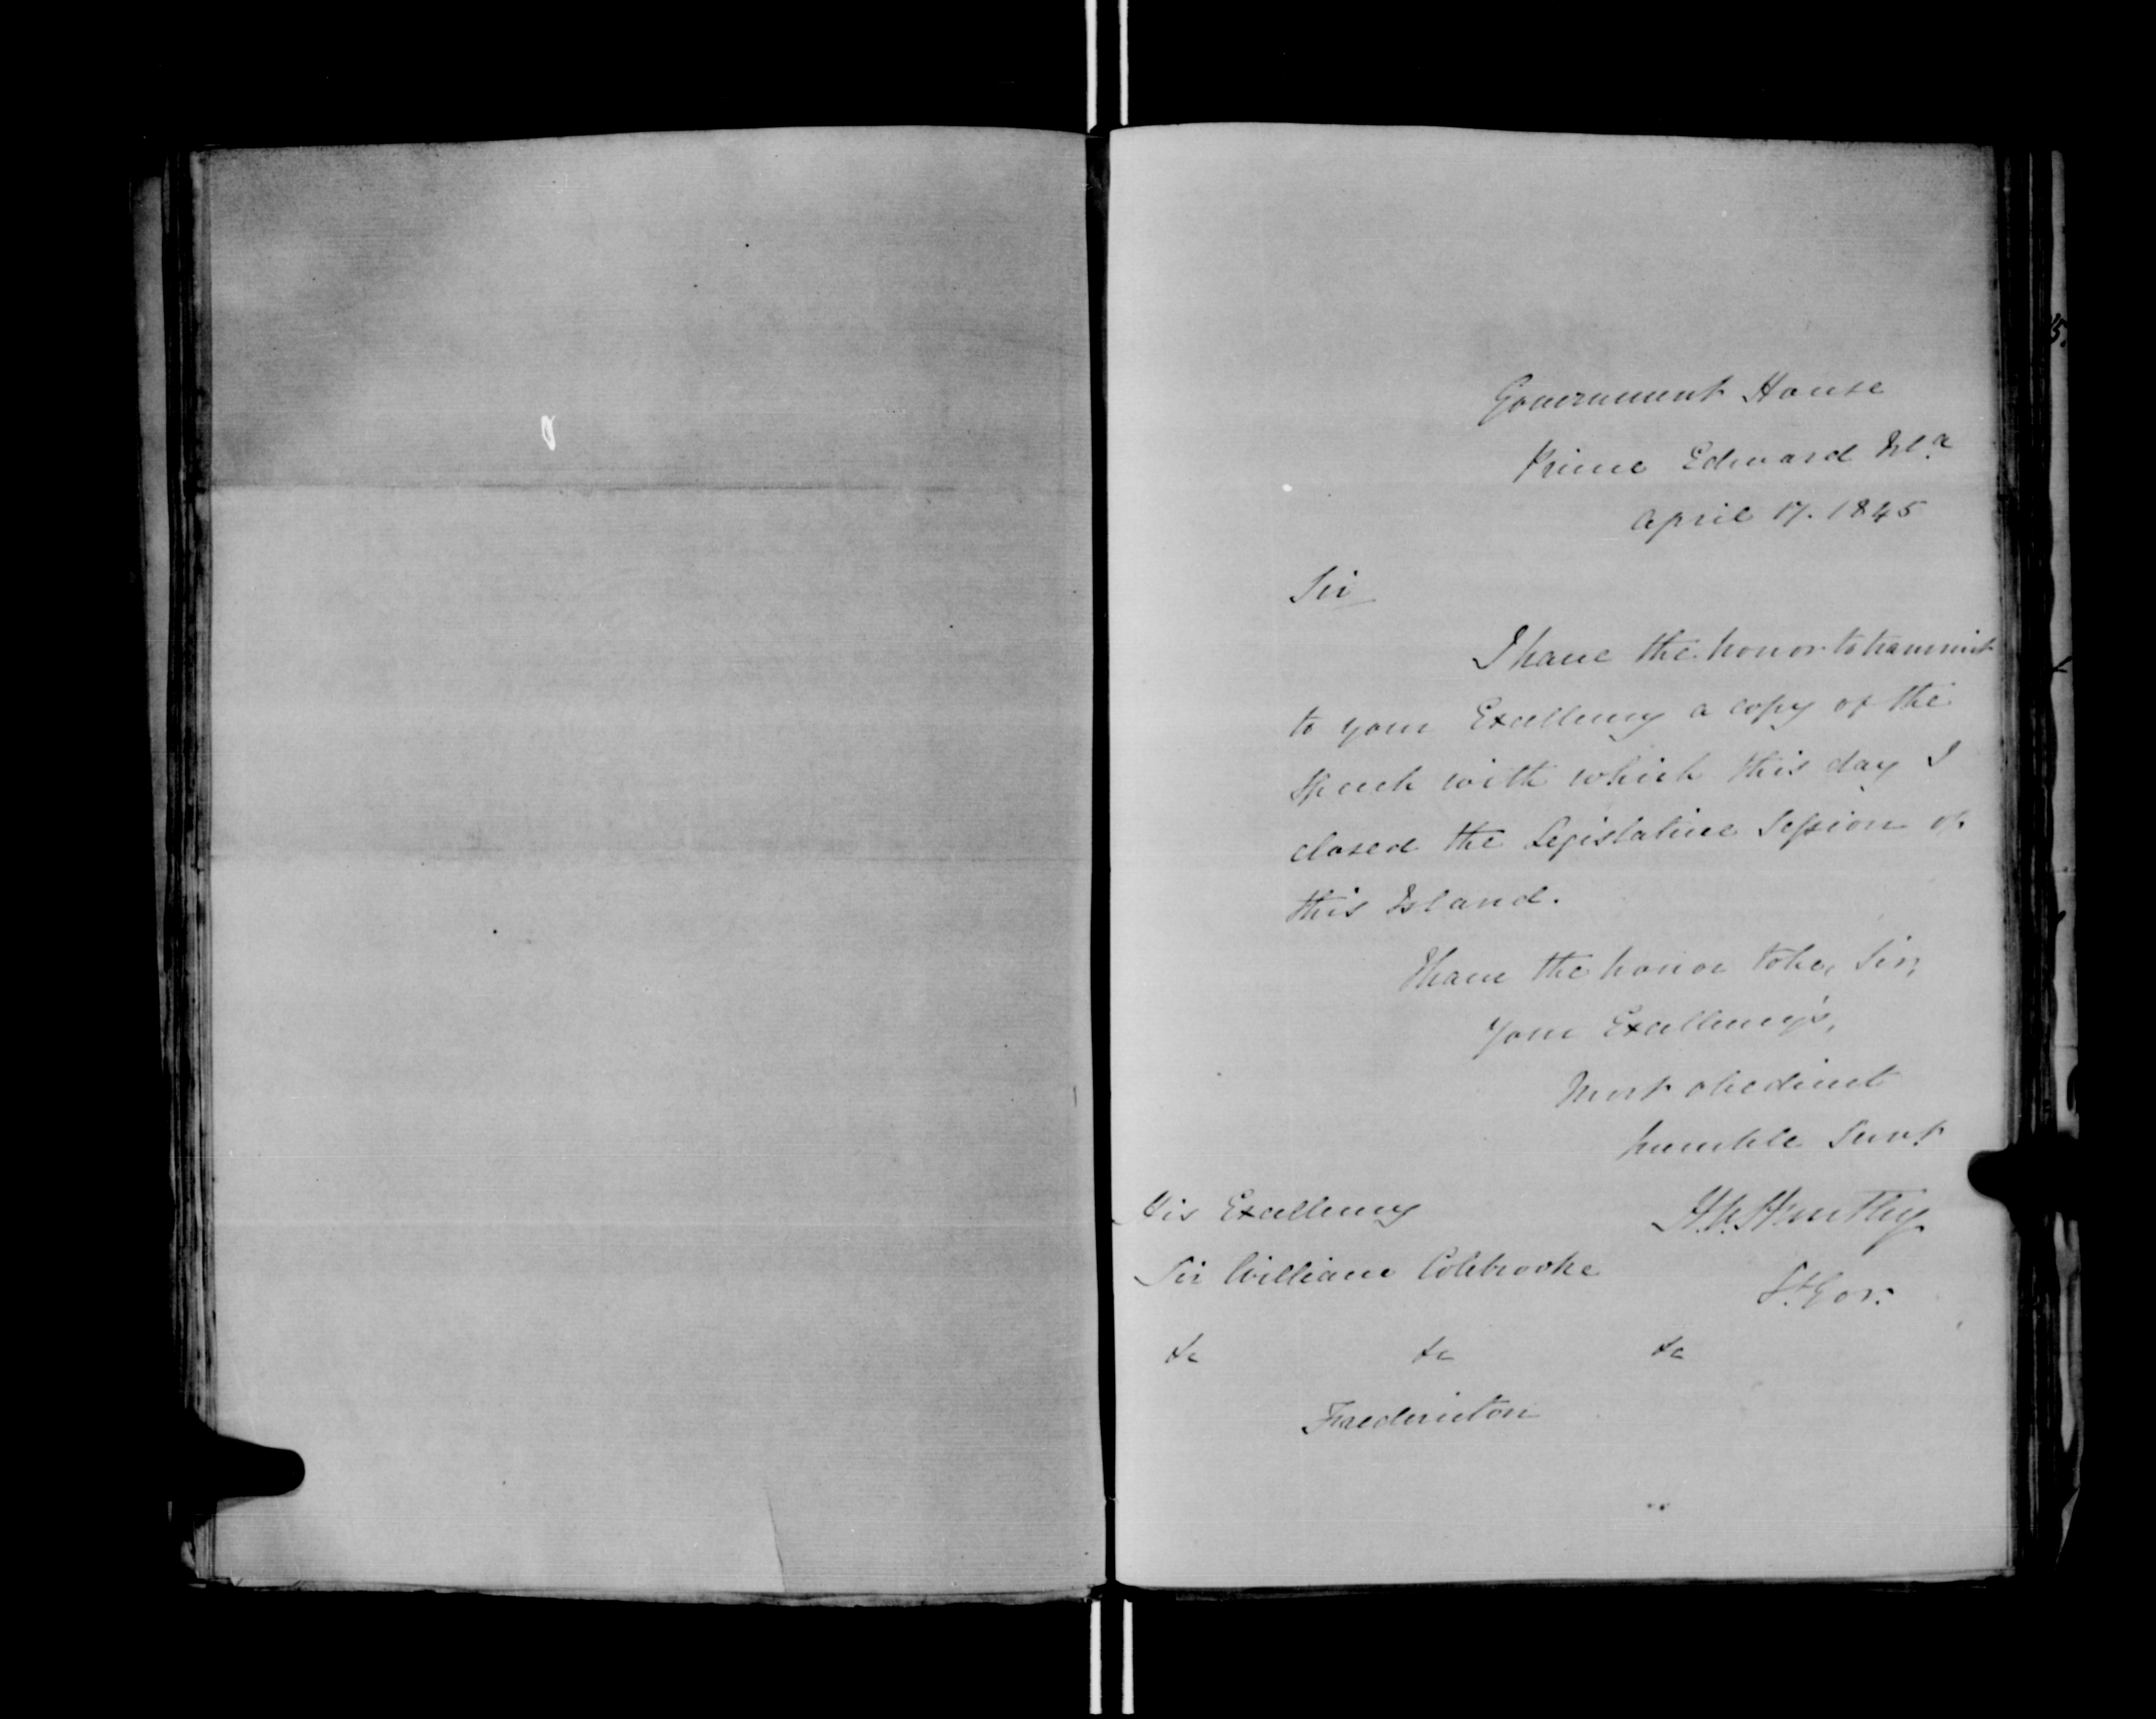 Government House
Prince Edward Isl.d
April 17. 1845
Sir
I have the honor to transmit
to your Excellency a copy of the
Speech with which this day I
closed the Legislative Session of
this Island.
I have the honor to be, Sir,
Your Excellency's,
Most obedient
humble Servt
His Excellency
H.V. Huntley
Sir William Colebrooke
Lt. Gov.
&c &c &c
Fredericton